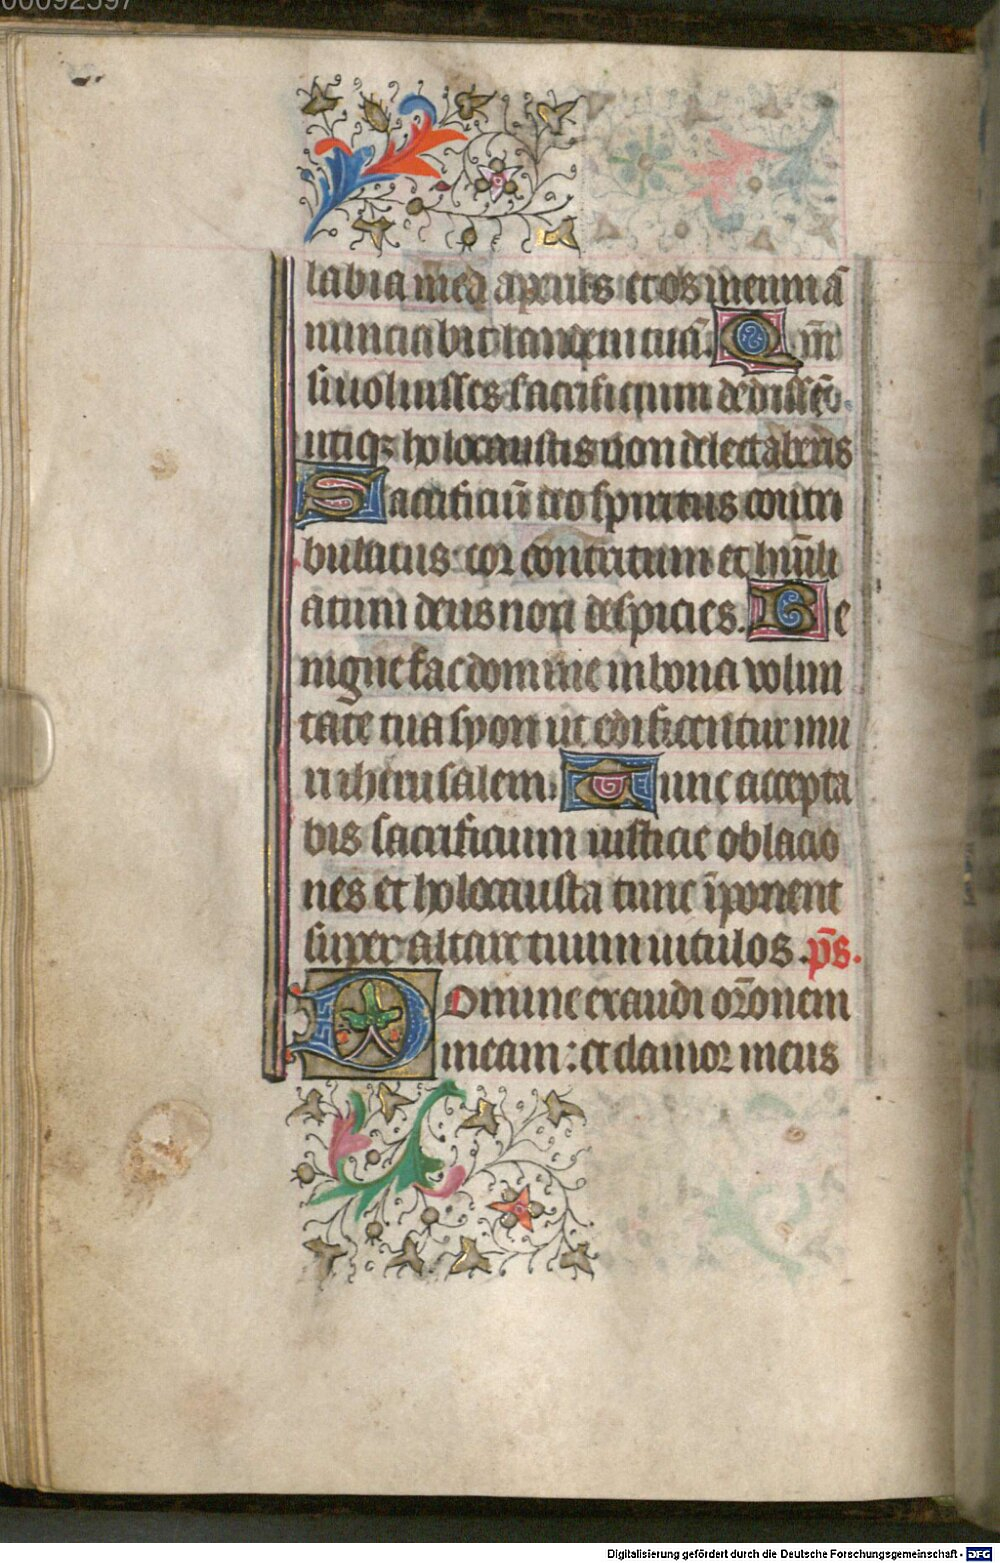 labia mea aperies et os meum ā
nunciabit laudem tuā. Qm̄
si voluisses sacrificium dedissē
utiqꝫ holocaustis non delectaberis
Sacrificiū deo spiritus contri
bulatus: cor contritum et humili
atum deus non despicies. Be
nigne fac domine in bona volun
tate tua syon ut edificentur mu
ri iherusalem. Tunc accepta
bis sacrificium iusticie oblacio
nes et holocausta tunc īponent
super altare tuum vitulos. p̄s.
Domine exaudi or̄onem
meam: et clamor meus
Digitalisierung gefördert durch die Deutsche Forschungsgemeinschaft - DFG